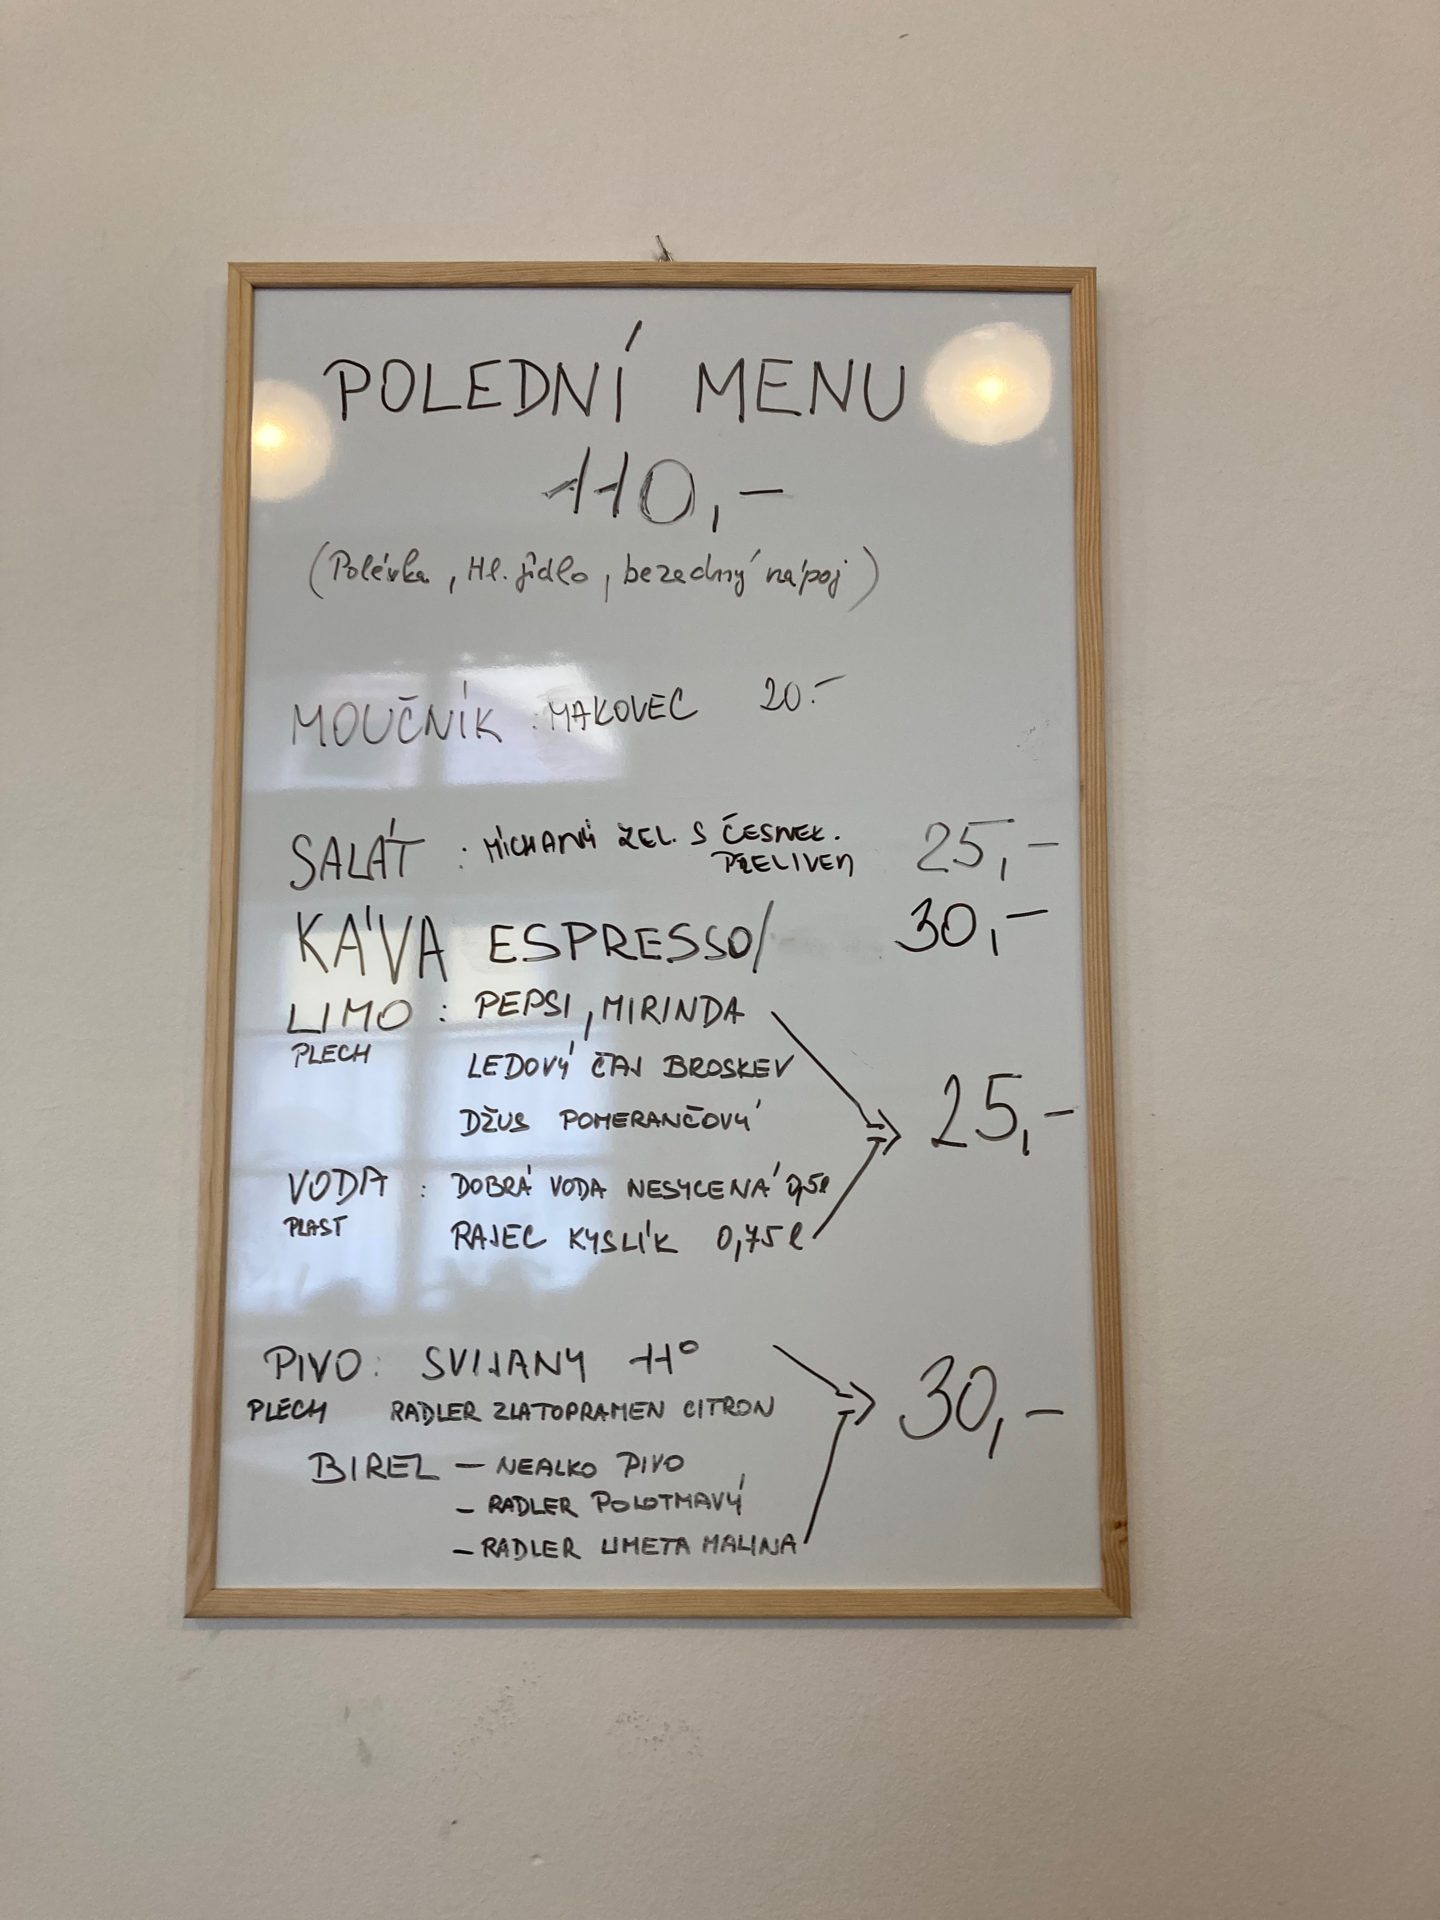 POLEDNÍ MENU
110,-
(Polévka, Hl. jídlo, bezedný nápoj)
MOUČNÍK : MAKOVEC 20.-
SALÁT : MÍCHANÝ ZEL. S ČESNEK. PŘELIVEM 25,-
KÁVA ESPRESSO/ 30,-
LIMO : PEPSI, MIRINDA
PLECH LEDOVÝ ČAJ BROSKEV
DŽUS POMERANČOVÝ 25,-
VODA : DOBRÁ VODA NESYCENÁ 0,5l
PLAST RAJEC KYSLÍK 0,75 l
PIVO: SVIJANY 11°
PLECH RADLER ZLATOPRAMEN CITRON 30,-
BIREL - NEALKO PIVO
- RADLER POLOTMAVÝ
- RADLER LIMETA MALINA